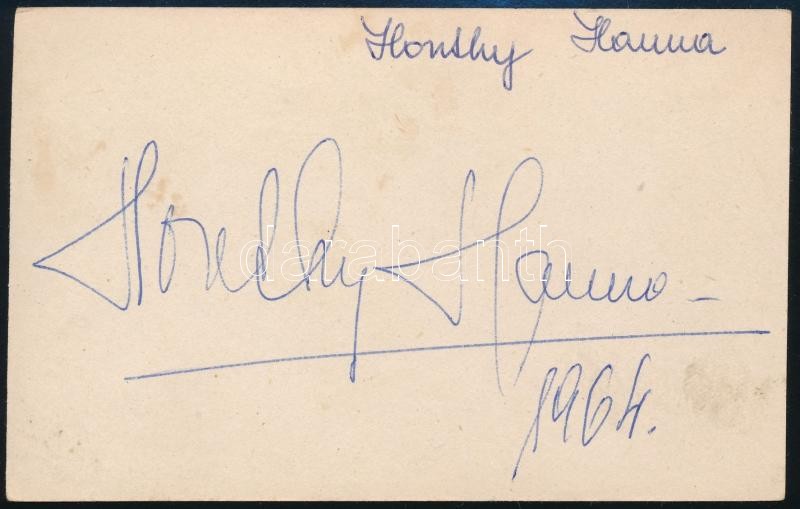 Honthy Hanna
Honthy Hanna
darabanth
1964.